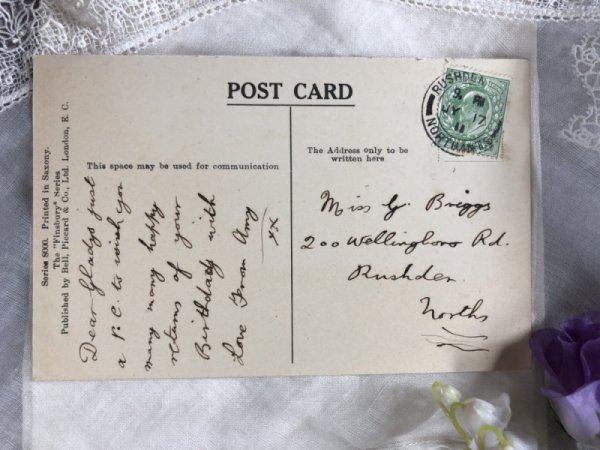 POST CARD
This space may be used for communication
The Address only to be
written here
Series 8000. Printed in Saxony.
The "Finsbury" Series
Published by Bell, Piccard & Co., Ltd. London, E. C.
Dear Gladys just
a P.C. to wish you
many many happy
returns of your
Birthday with
Love From Amy
xx
Miss G. Briggs
200 Wellingboro Rd.
Rushden
Norths
RUSHDEN
MY 17
11